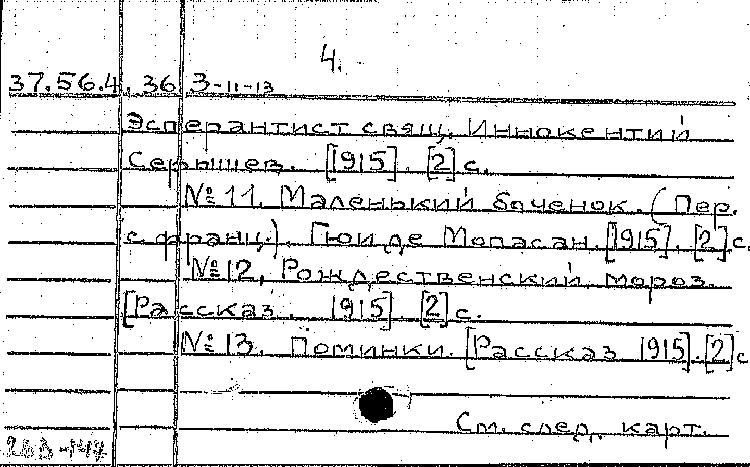 4.
37.56.4. 36 3-11-13
Эсперантист свящ. Иннокентий
Серышев. [1915]. [2] с.
№ 11. Маленький боченок. (Пер.
с франц.). Гюи де Мопасан. [1915]. [2] с.
№ 12. Рождественский мороз.
[Рассказ. 1915]. [2] с.
№ 13. Поминки. [Рассказ 1915]. [2] с
См. след. карт.